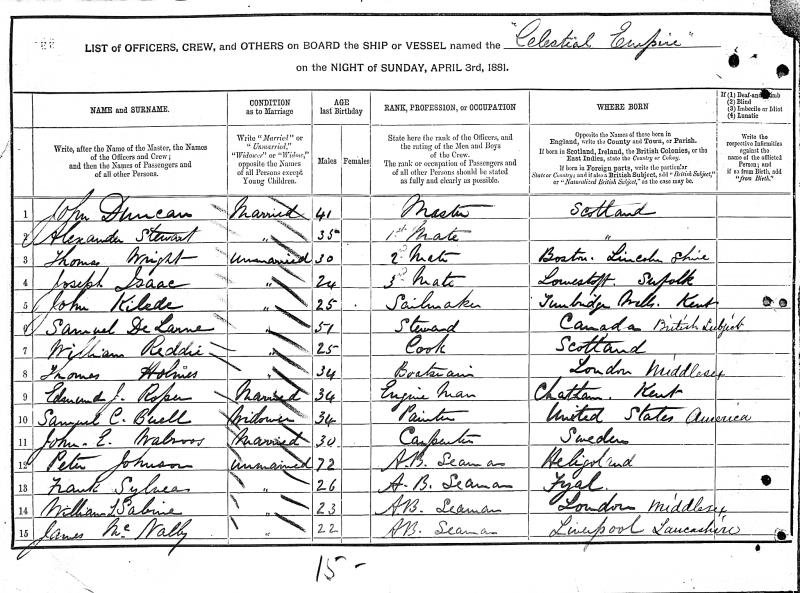 LIST of OFFICERS, CREW, and OTHERS on BOARD the SHIP or VESSEL named the "Celestial Empire"
on the NIGHT of SUNDAY, APRIL 3rd, 1881.
NAME and SURNAME. CONDITION as to Marriage AGE last Birthday RANK, PROFESSION, or OCCUPATION WHERE BORN If (1) Deaf-and-Dumb (2) Blind (3) Imbecile or Idiot (4) Lunatic
Write, after the Name of the Master, the Names of the Officers and Crew; and then the Names of Passengers and of all other Persons. Write "Married" or "Unmarried," "Widower" or "Widow," opposite the Names of all Persons except Young Children. Males Females State here the rank of the Officers, and the rating of the Men and Boys of the Crew. The rank or occupation of Passengers and of all other Persons should be stated as fully and clearly as possible. Opposite the Names of those born in England, write the County and Town, or Parish. If born in Scotland, Ireland, the British Colonies, or the East Indies, state the Country or Colony. If born in Foreign parts, write the particular State or Country; and if also a British Subject, add "British Subject," or "Naturalized British Subject," as the case may be. Write the respective Infirmities against the name of the afflicted Person; and if so from Birth, add "from Birth."
1 John Duncan Married 41 Master Scotland
2 Alexander Stewart " 35 1st Mate "
3 Thomas Wright Unmarried 30 2nd Mate Boston. Lincoln Shire
4 Joseph Isaac " 24 3rd Mate Lowestoft. Suffolk
5 John " 25 Sailmaker Tunbridge Wells. Kent
6 Samuel De " 51 Steward Canada British Subject
7 William Reddie " 25 Cook Scotland
8 Thomas Holmes " 34 Boatswain London Middlesex
9 Edmund J. Roper Married 34 Engine Man Chatham. Kent
10 Samuel C. Buell Widower 34 Painter United States America
11 John. E. Married 30 Carpenter Sweden
12 Peter Johnson Unmarried 72 A.B. Seaman Heligoland
13 Frank " 26 A.B. Seaman Fyal.
14 William Sabine " 23 AB. Seaman London Middlesex
15 James Mc Nally " 22 AB. Seaman Liverpool Lancashire
15 -